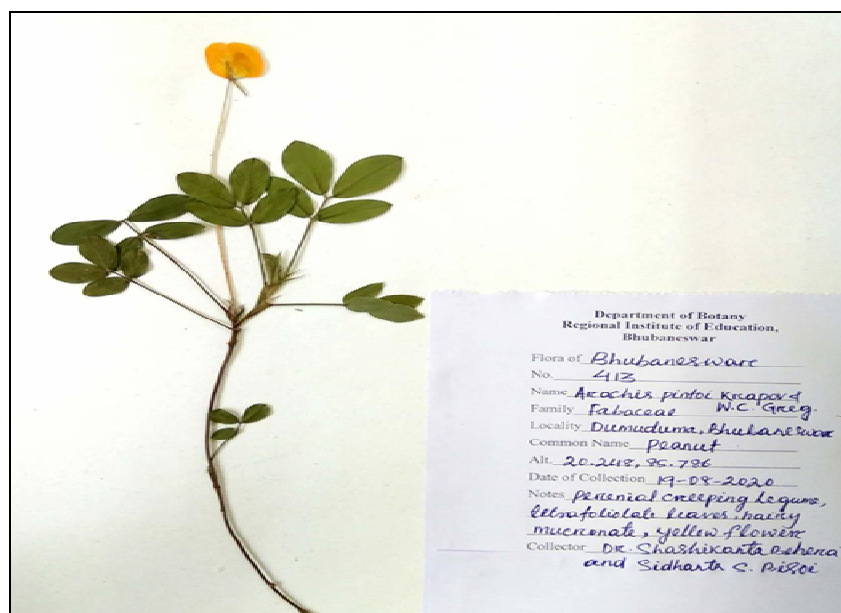 Department of Botany
Regional Institute of Education,
Bhubaneswar
Flora of Bhubaneswar
No. 413
Name Arachis pintoi Krapov &
Family Fabaceae W.C. Greg.
Locality Dumuduma, Bhubaneswar
Common Name Peanut
Alt. 20.248, 85.786
Date of Collection 19-08-2020
Notes Perennial creeping legume,
tetrafoliolate leaves hairy
mucronate, yellow flower
Collector Dr. Shashikanta Behera
and Sidharta S. Bisoi